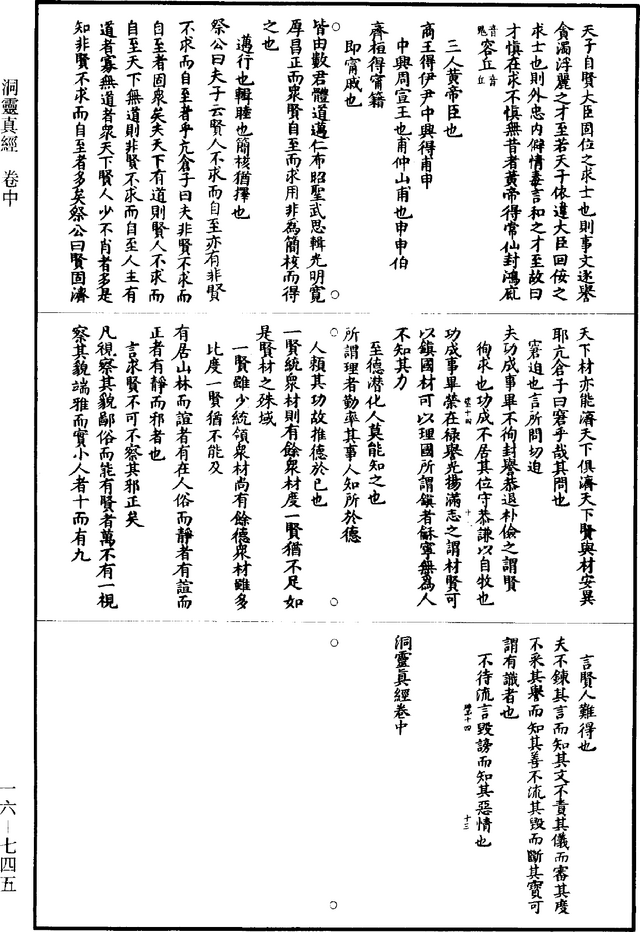 天子自賢大臣固位之求士也則事文逐譽
貪濁浮麗之才至若天子依違大臣回佞之
求士也則外忠内僻情毒言和之才至故曰
才慎在求不慎無昔者黄帝得常仙封鴻厎
音鬼容丘音丘
三人黄帝臣也
商王得伊尹中興得甫申
中興周宣王也甫仲山甫也申申伯
齊桓得甯籍
即甯戚也
皆由數君體道邁仁布昭聖武思輯光明寛
厚昌正而衆賢自至而求用非為簡核而得
之也
邁行也輯睦也簡核猶擇也
祭公曰夫子云賢人不求而自至亦有非賢
不求而自至者乎亢倉子曰夫非賢不求而
自至者固衆矣夫天下有道則賢人不求而
自至天下無道則非賢不求而自至人主有
道者寡無道者衆天下賢人少不肖者多是
知非賢不求而自至者多矣祭公曰賢固濟
天下材亦能濟天下俱濟天下賢與材安異
耶亢倉子曰窘乎哉其問也
窘迫也言所問切迫
夫功成事畢不徇封譽恭退朴儉之謂賢
徇求也功成不居其位守恭謙以自牧也
功成事畢榮在禄譽光揚滿志之謂材賢可
以鎮國材可以理國所謂鎮者穌寧無為人
不知其力
至德潜化人莫能知之也
所謂理者勤率其事人知所於德
人賴其功故推德於已也
一賢統衆材則有餘衆材度一賢猶不足如
是賢材之殊域
一賢雖少統領衆材尚有餘德衆材雖多
比度一賢猶不能及
有居山林而諠者有在人俗而靜者有諠而
正者有靜而邪者也
言求賢不可不察其邪正矣
凡視察其貌鄙俗而能有賢者萬不有一視
察其貌端雅而實小人者十而有九
言賢人難得也
夫不鍊其言而知其文不責其儀而審其度
不采其譽而知其善不流其毀而斷其實可
謂有識者也
不待流言毀謗而知其惡情也
十三
洞靈真經卷中
洞靈真經 卷中
一六—七四五